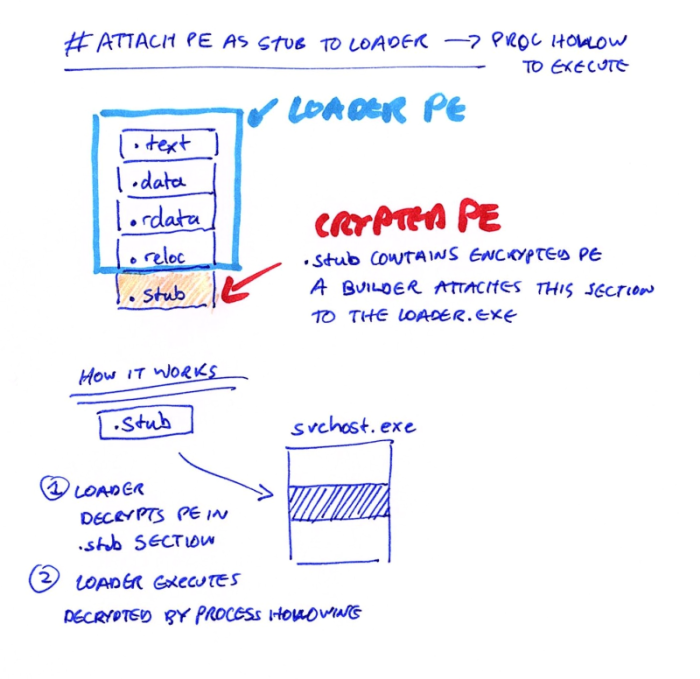 # ATTACH PE AS STUB TO LOADER → PROC HOLLOW
TO EXECUTE
LOADER PE
.text
.data
.rdata
.reloc
.stub
CRYPTED PE
.stub CONTAINS ENCRYPTED PE
A BUILDER ATTACHES THIS SECTION
TO THE LOADER.EXE
HOW IT WORKS
.stub
svchost.exe
① LOADER
DECRYPTS PE IN
.stub SECTION
② LOADER EXECUTES
DECRYPTED BY PROCESS HOLLOWING